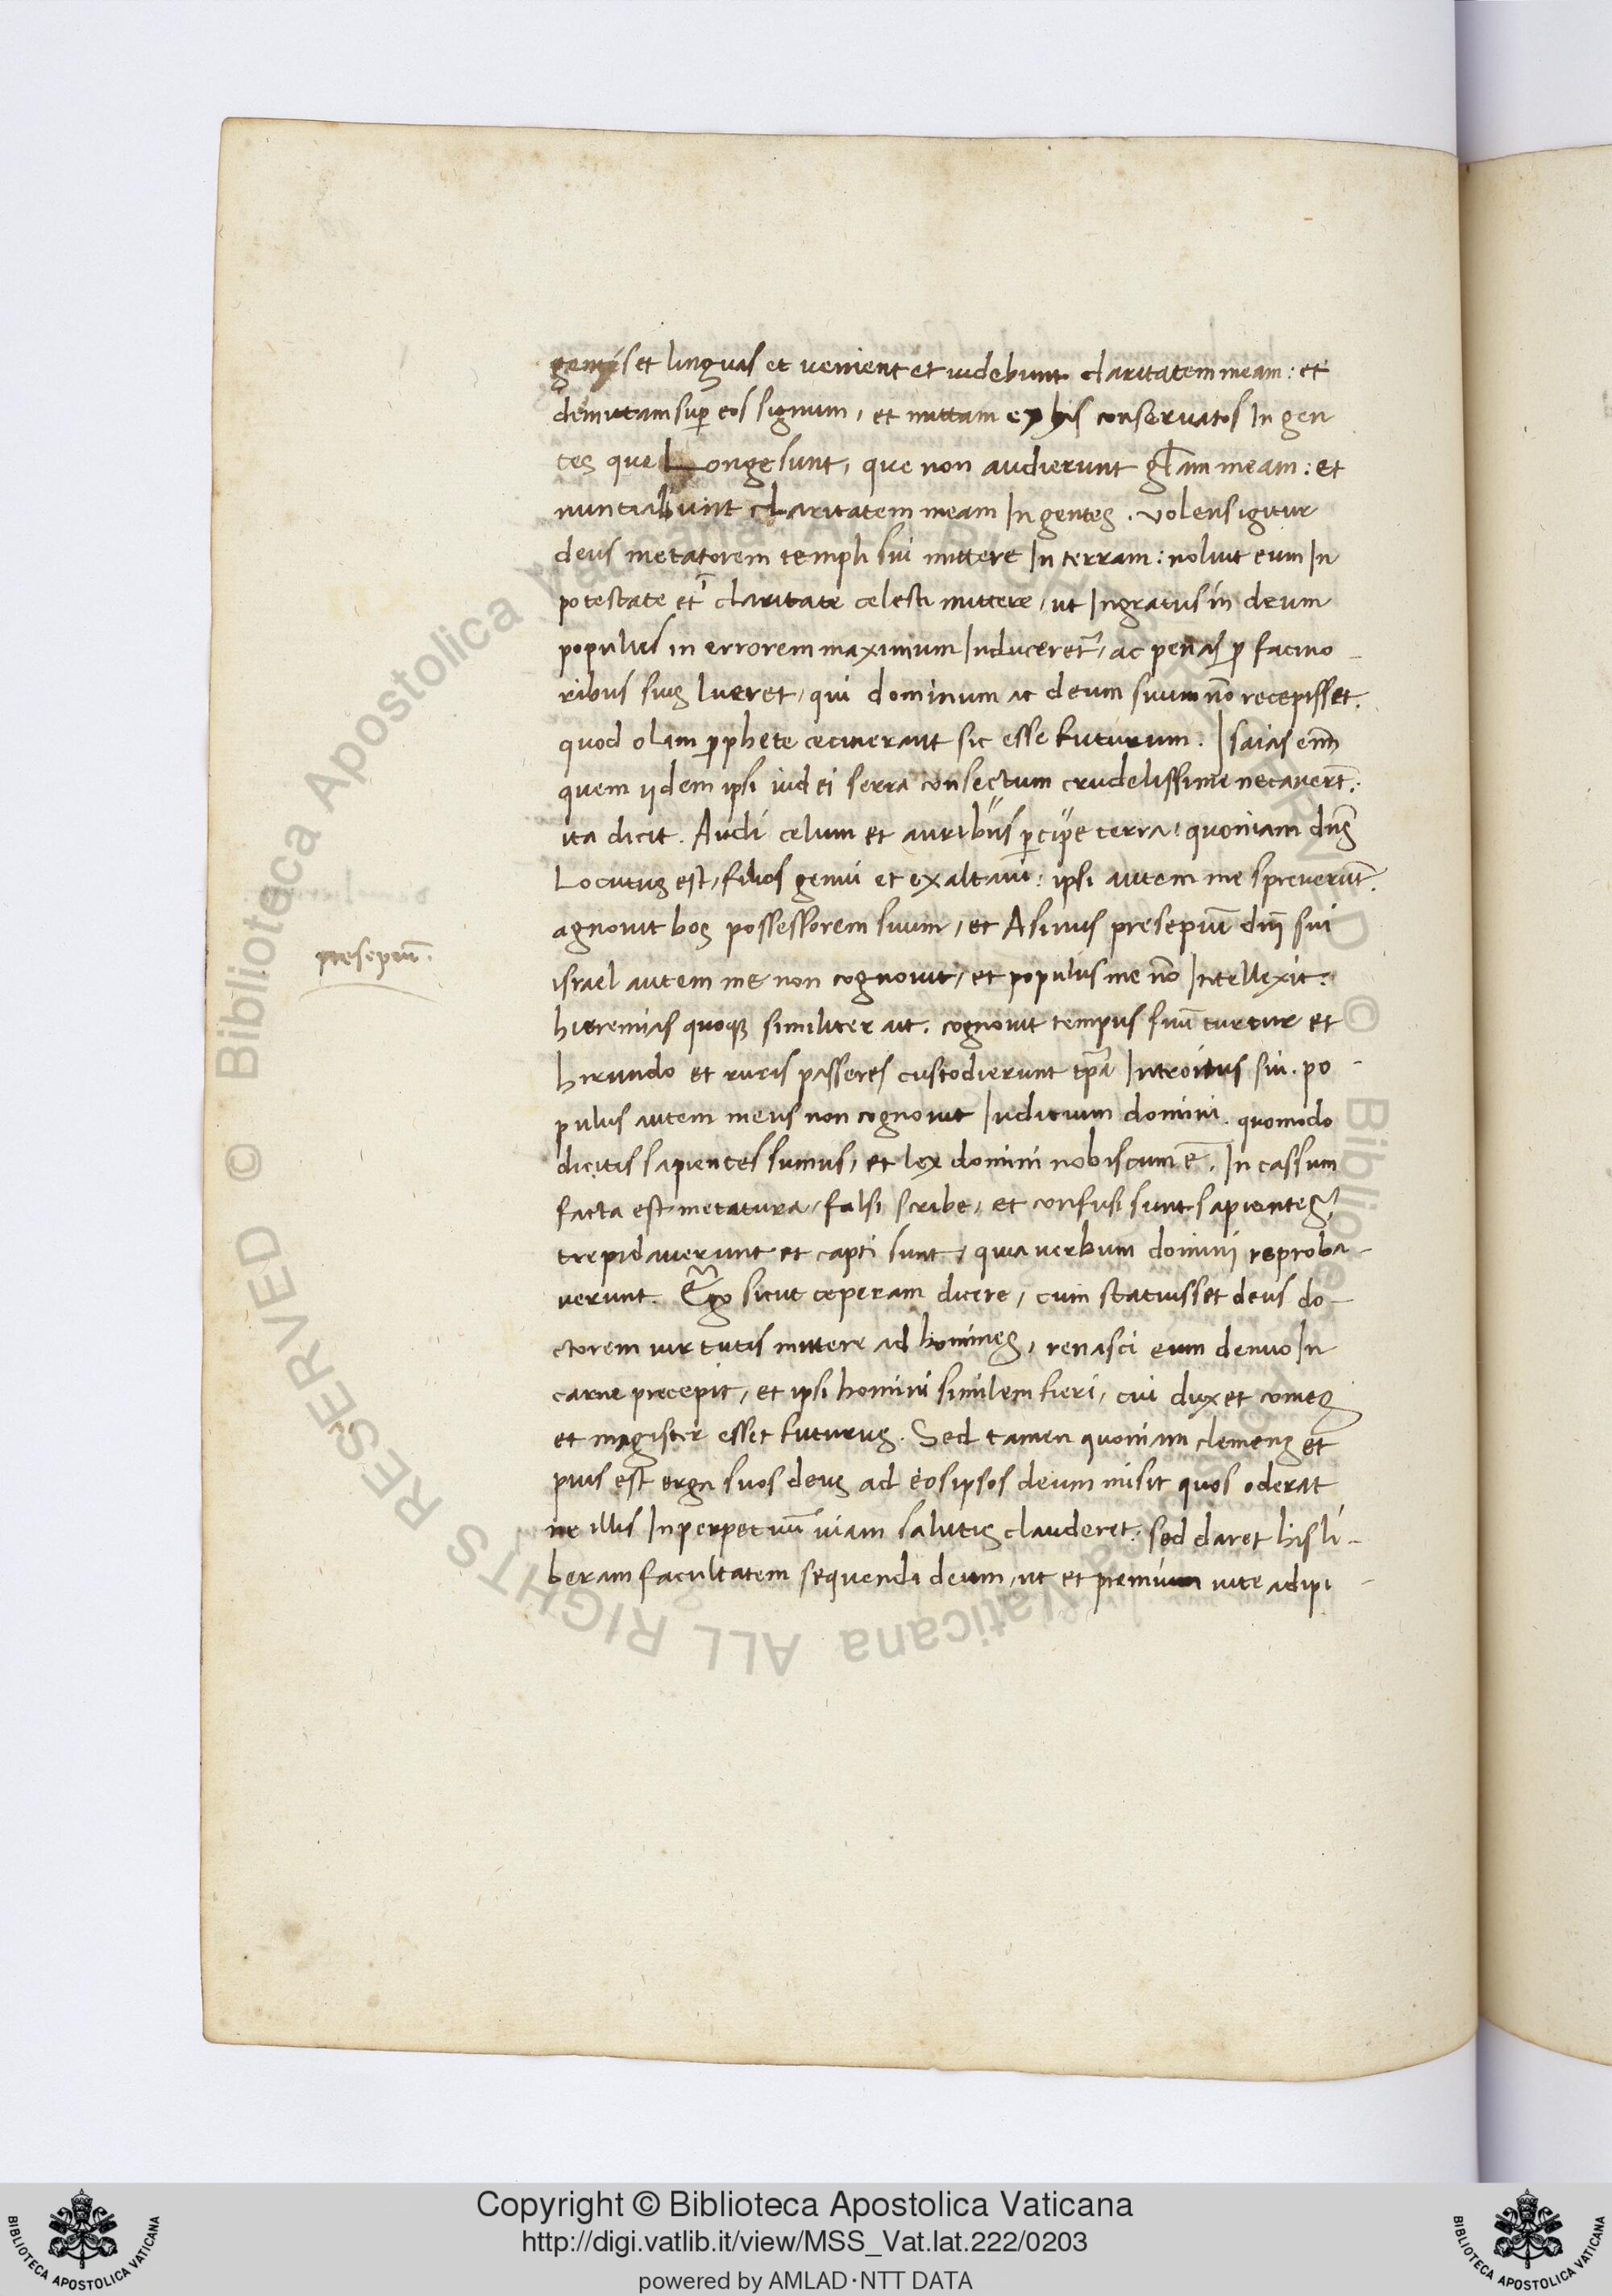 gentes et linguas et uenient et uidebunt claritatem meam: et
demittam suꝑ eos signum, et mittam ex his conseruatos In gen
tes que Longe sunt, que non audierunt gl̄am meam: et
nuntiabunt claritatem meam In gentes. uolens igitur
deus metatorem templi sui mittere In terram: noluit eum In
potestate et claritate celesti mittere, ut Ingratus in deum
populus in errorem maximum Induceret᷑, ac penas ꝓ facino-
ribus suis lueret, qui dominum ac deum suum nō recepisset.
quod olim ꝓphete cecinerant sic esse futurum. Isaias em̄
quem ijdem ipsi iudei serra consectum crudelissime necauert̄:
ita dicit. Audi celum et auribus ꝑcipe terra, quoniam dn̄s
Locutus est, filios genui et exaltaui: ipsi autem me spreuerūt.
agnouit bos possessorem suum, et Asinus presepiū dn̄i sui
israel autem me non cognouit, et populus me nō Intellexit.
hieremias quoqꝫ similiter ait. cognouit tempus suū turtur et
hirundo et ruris passeres custodierunt tp̄a Introitus sui. po-
pulus autem meus non cognouit Iuditium domini. quomodo
dicitis sapientes sumus, et lex domini nobiscum ē. In cassum
facta est metatura, falsi scribe, et confusi sunt sapientes,
trepidauerunt et capti sunt, quia uerbum domini reproba-
uerunt. Ergo sicut ceperam dicere, cum statuisset deus do-
ctorem uirtutis mittere ad homines, renasci eum denuo In
carne precepit, et ipsi homini similem fieri, cui dux et comes
et magister esset futurus. Sed tamen quoniam clemens et
pius est erga suos deus ad eos ipsos deum misit quos oderat
ne illis In perpetuū uiam salutis clauderet: sed daret his li-
beram facultatem sequendi deum, ut et premium uite adipi-
presepiū.
Copyright © Biblioteca Apostolica Vaticana
http://digi.vatlib.it/view/MSS_Vat.lat.222/0203
powered by AMLAD·NTT DATA
BIBLIOTECA APOSTOLICA VATICANA
BIBLIOTECA APOSTOLICA VATICANA
© Biblioteca Apostolica Vaticana ALL RIGHTS RESERVED